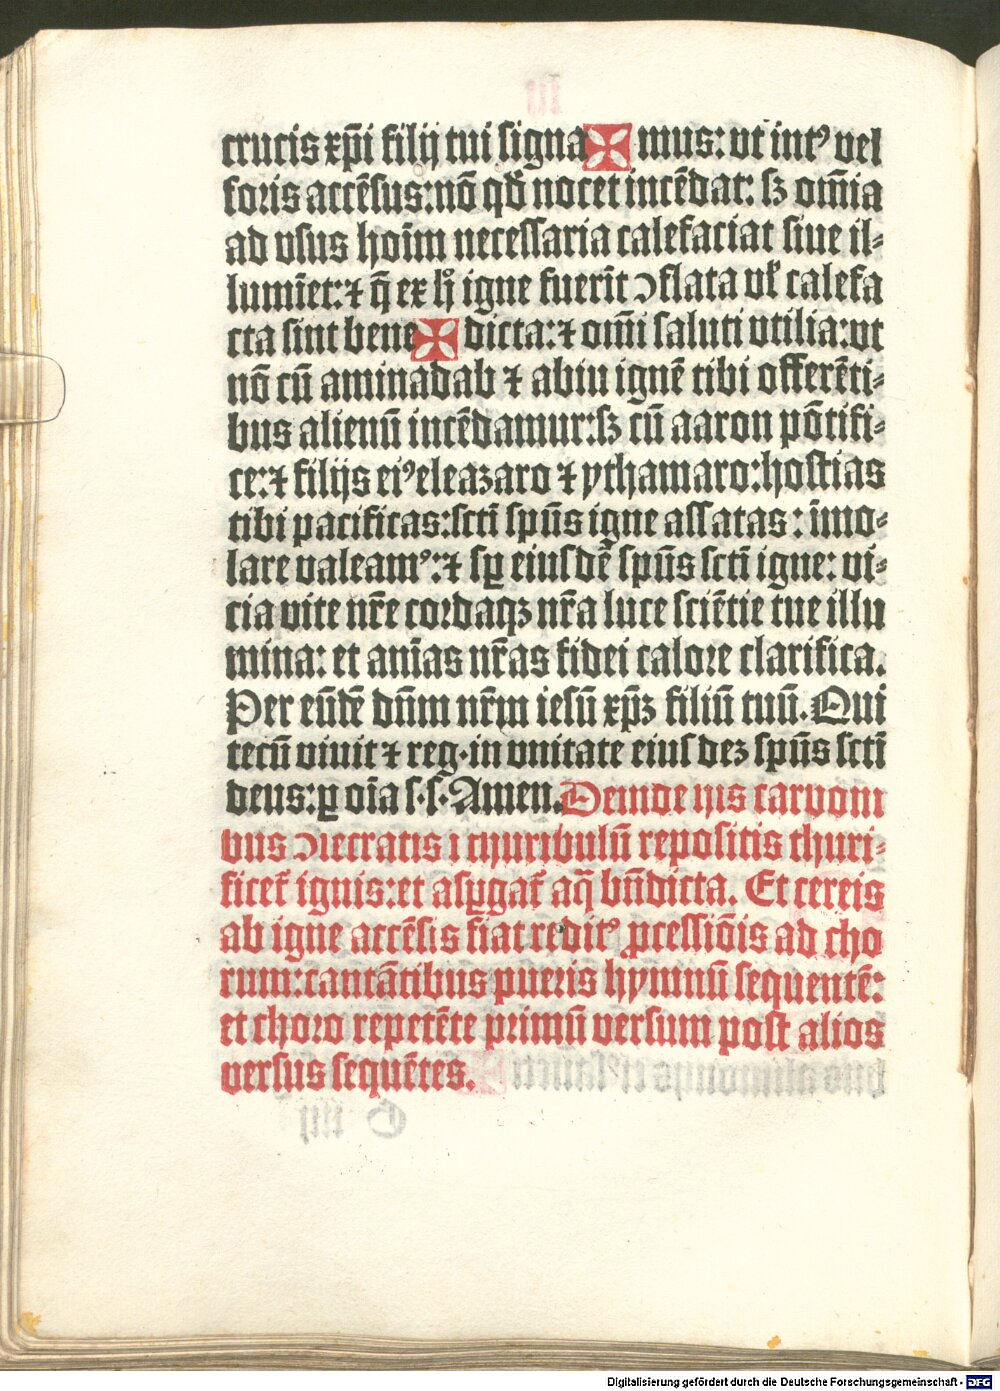 crucis xp̄i filij tui signa✠mus: vt intꝰ vel
foris accēsus: nō qđ nocet incēdat: sꝫ om̄ia
ad vsus hoīm necessaria calefaciat siue il⸗
lumīet: ⁊ q̄ ex hͦ igne fuerīt ↄflata vl̛ calefa
cta sint bene✠dicta: ⁊ om̄i saluti vtilia: vt
nō cū aminadab ⁊ abiu ignē tibi offerēti⸗
bus alienū incēdamur: sꝫ cū aaron pōtifi⸗
ce: ⁊ filijs eiꝰ eleazaro ⁊ ythamaro: hostias
tibi pacificas: scti̅ spūs igne assatas: īmo⸗
lare valeamꝰ: ⁊ sꝑ eiusdē spūs scti̅ igne: vi⸗
cia vite nr̄e cordaqꝫ nr̄a luce sciētie tue illu
mina: et anīas nr̄as fidei calore clarifica.
Per eūdē dūm nr̄m iesū xp̄ꝫ filiū tuū. Qui
tecū viuit ⁊ reg. in vnitate eiusdeꝫ spūs scti̅
deus: ꝑ oīa s. s. Amen. Deinde ijis carboni
bus ↄsecratis ī thuribulū repositis thuri⸗
ficet̛ ignis: et aspgat̛ aq̄ bn̄dicta. Et cereis
ab igne accēsis fiat reditꝰ ꝓcessiōis ad cho
rum: cantātibus pueris hymnū sequentē:
et choro repetēte primū versum post alios
versus sequētes.
Digitalisierung gefördert durch die Deutsche Forschungsgemeinschaft - DFG